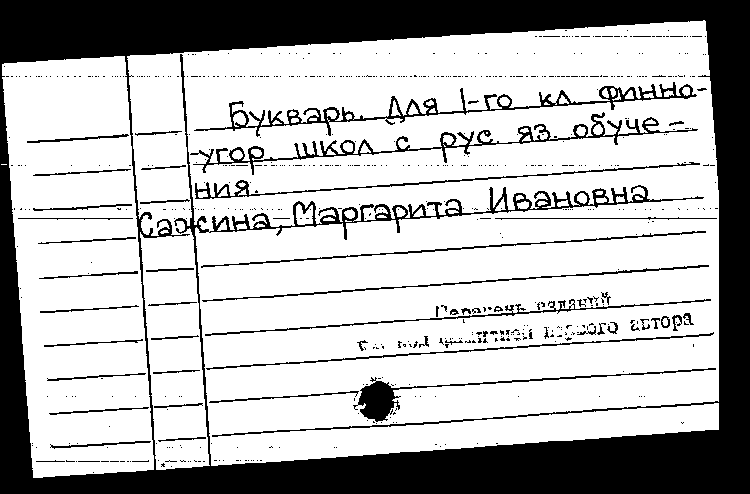 Букварь. Для 1-го кл. финно-
-угор. школ с рус. яз. обуче-
ния.
Сажина, Маргарита Ивановна
Перечень изданий
см. под фамилией первого автора